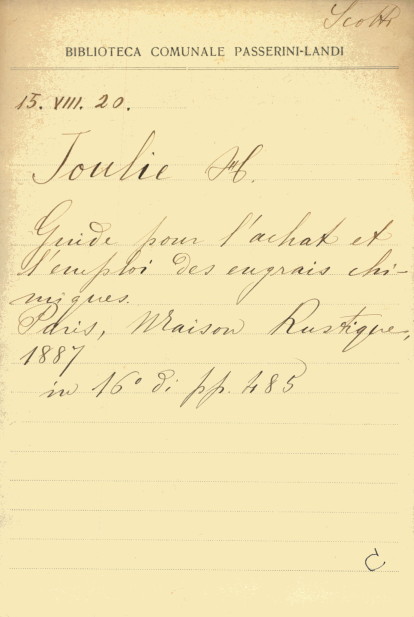 Scotti
BIBLIOTECA COMUNALE PASSERINI-LANDI
15. VIII. 20.
Joulie H.
Guide pour l'achat et
l'emploi des engrais chi-
miques.
Paris, Maison Rustique,
1887
in 16° di pp. 485
C